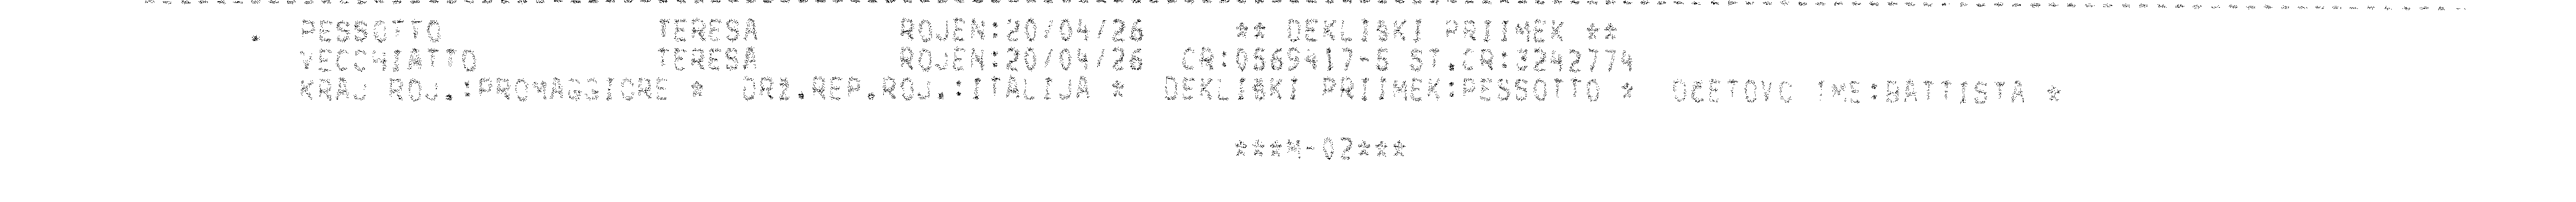 . PESSOTTO TERESA ROJEN:20/04/26 ** DEKLISKI PRIIMEK **
VECCHIATTO TERESA ROJEN:20/04/26 CR:0569417-5 ST.CR:3242774
KRAJ ROJ.:PROMAGGIORE * DRZ.REP.ROJ.:ITALIJA * DEKLISKI PRIIMEK:PESSOTTO * OCETOVO IME:BATTISTA *
***M-02***